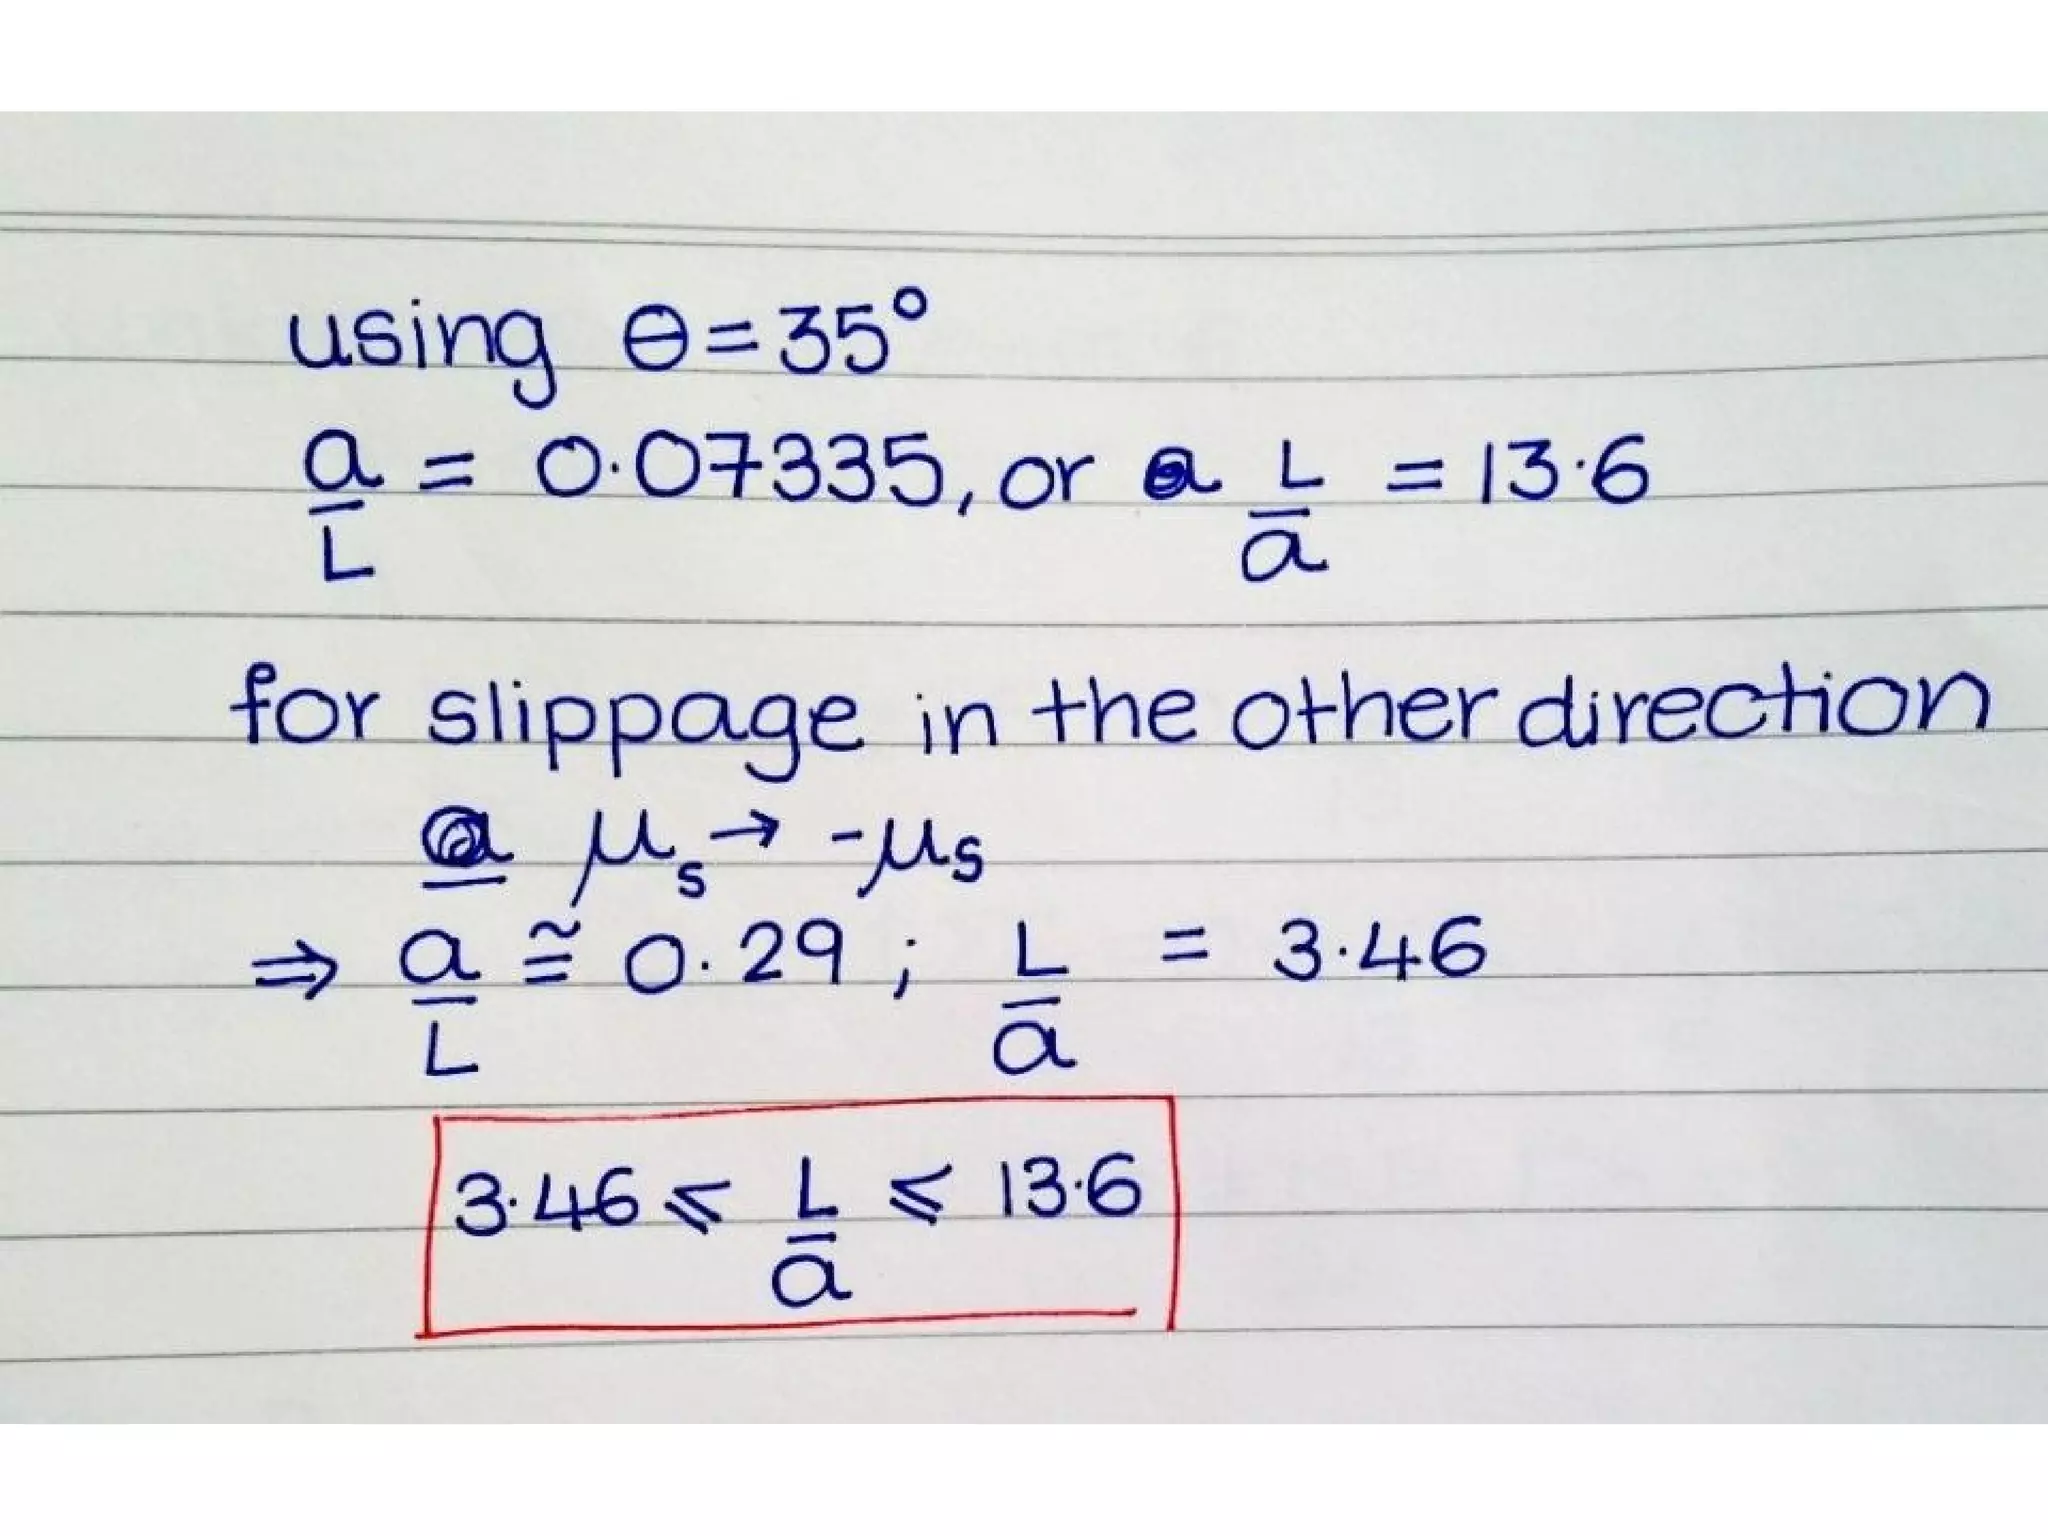 using θ = 35°
a/L = 0.07335, or L/a = 13.6
for slippage in the other direction
μs → -μs
⇒ a/L ≅ 0.29 ; L/a = 3.46
3.46 ⩽ L/a ⩽ 13.6